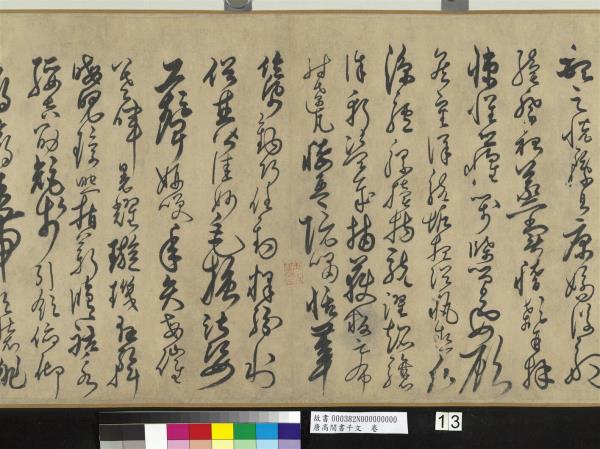 足悅豫且康嫡後嗣
續祭祀蒸嘗稽顙再拜
悚懼恐惶箋牒簡要顧
答審詳骸垢想浴執熱願
涼驢騾犢特駭躍超驤
誅斬賊盜捕獲叛亡布
射遼丸嵇琴阮嘯恬筆
倫紙鈞巧任釣釋紛利
俗並皆佳妙毛施淑姿
工顰妍笑年矢每催
羲暉朗耀璇璣懸斡
晦魄環照指薪修祜永
綏吉劭矩步引領俯仰
故書 000382N000000000
唐高閒書千文 卷
13